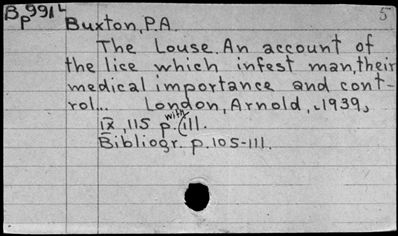 Bp991L 5
Buxton, P.A.
The Louse. An account of
the lice which infest man, their
medical importance and cont-
rol... London, Arnold, 1939,
IX, 115 p. with ill.
Bibliogr. p. 105-111.